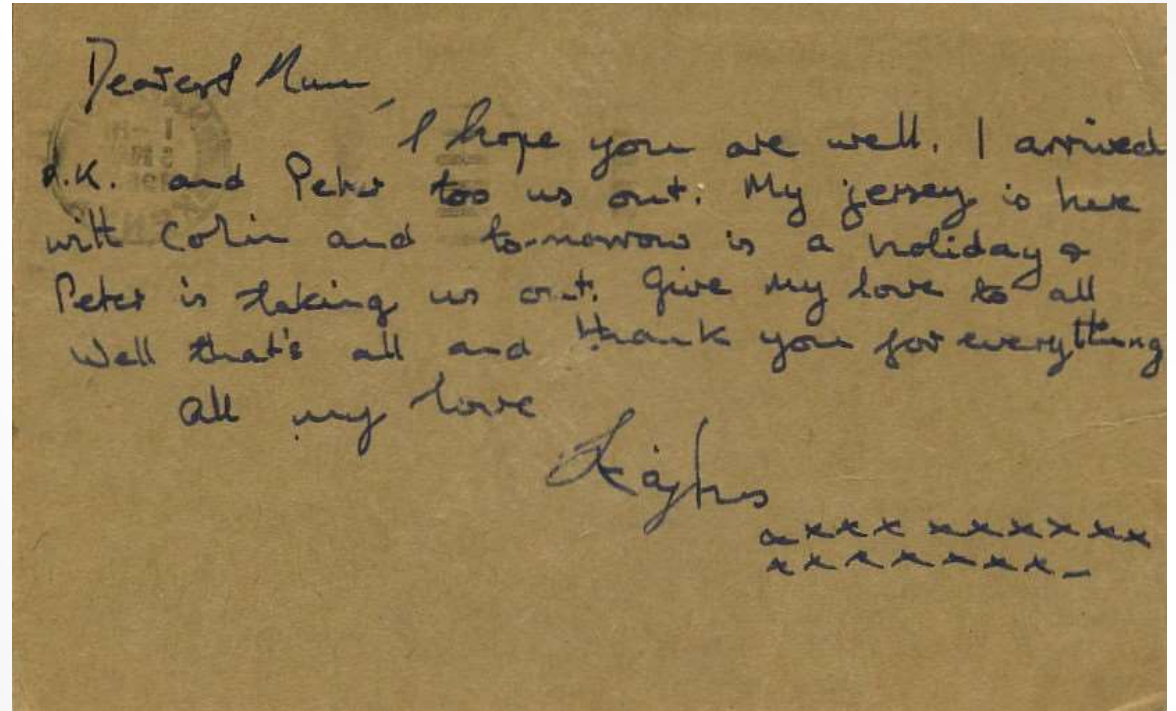 Dearest Mum,
I hope you are well. I arrived
O.K. and Peter too us out. My jersey is here
with Colin and to-morrow is a holiday &
Peter is taking us out. Give my love to all
Well that's all and thank you for everything
all my love
xxxx xxxxxx
xxxxxxx